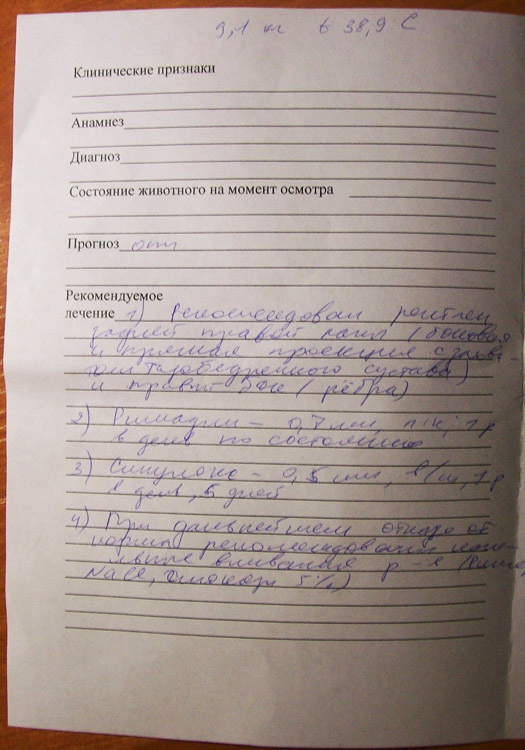 9,1 кг t 38,9 C
Клинические признаки
Анамнез
Диагноз
Состояние животного на момент осмотра
Прогноз
Рекомендуемое
лечение 1) Рекомендован рентген
задней правой лапы (боковая
и прямая проекция с
тазобедренного сустава)
и правой (рёбра)
2) Римадил - 0,7 мл, п/к, 1 р
в день по состоянию
3) Синулокс - 0,5 мл, в/м, 1 р
в день, 5 дней
4) При дальнейшем отказе от
корма рекомендованы
вливания р-в
NaCl, глюкоза 5%)